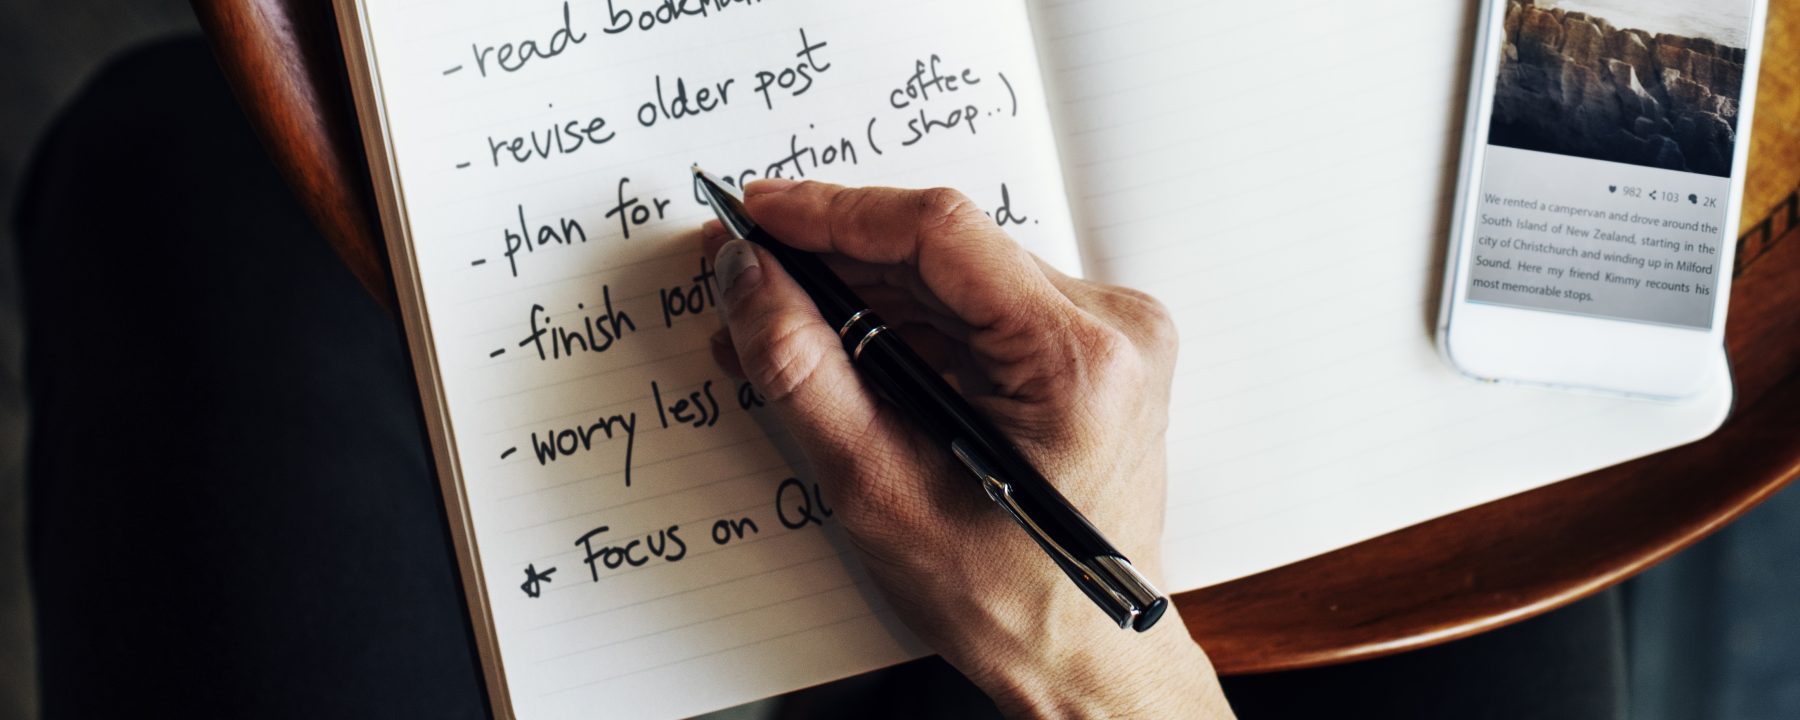 - read
- revise older post
- plan for (coffee shop..)
- finish
- worry less
* Focus on
982 103 2K
We rented a campervan and drove around the
South Island of New Zealand, starting in the
city of Christchurch and winding up in Milford
Sound. Here my friend Kimmy recounts his
most memorable stops.